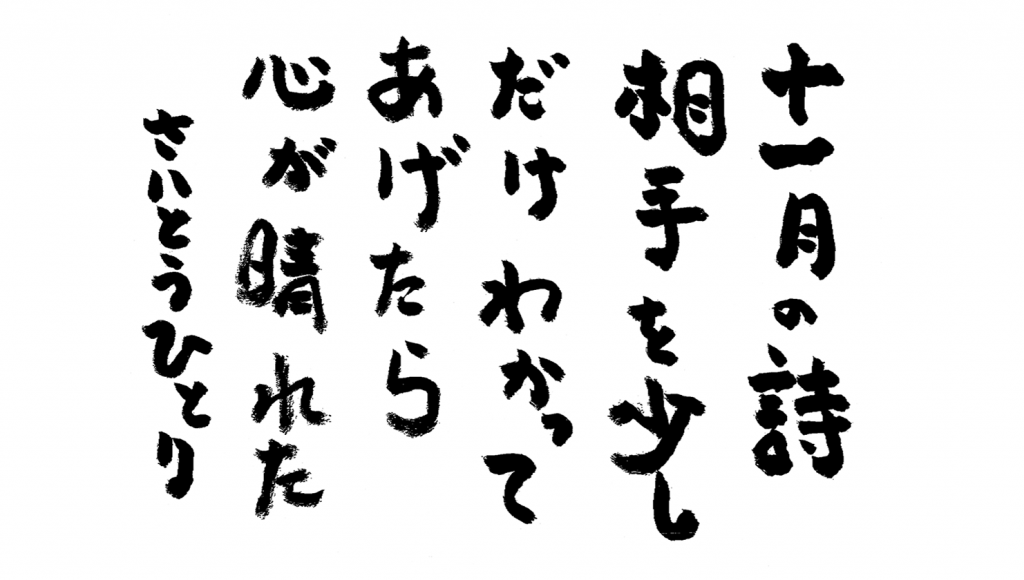 十一月の詩
相手を少し
だけわかって
あげたら
心が晴れた
さいとうひとり